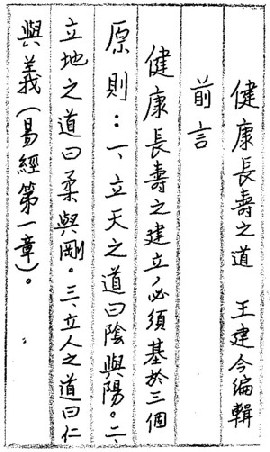 健康長壽之道　王建今編輯
前言
健康長壽之建立，必須基於三個
原則：一、立天之道曰陰與陽。二
立地之道曰柔與剛。三、立人之道曰仁
與義(易經第一章)。